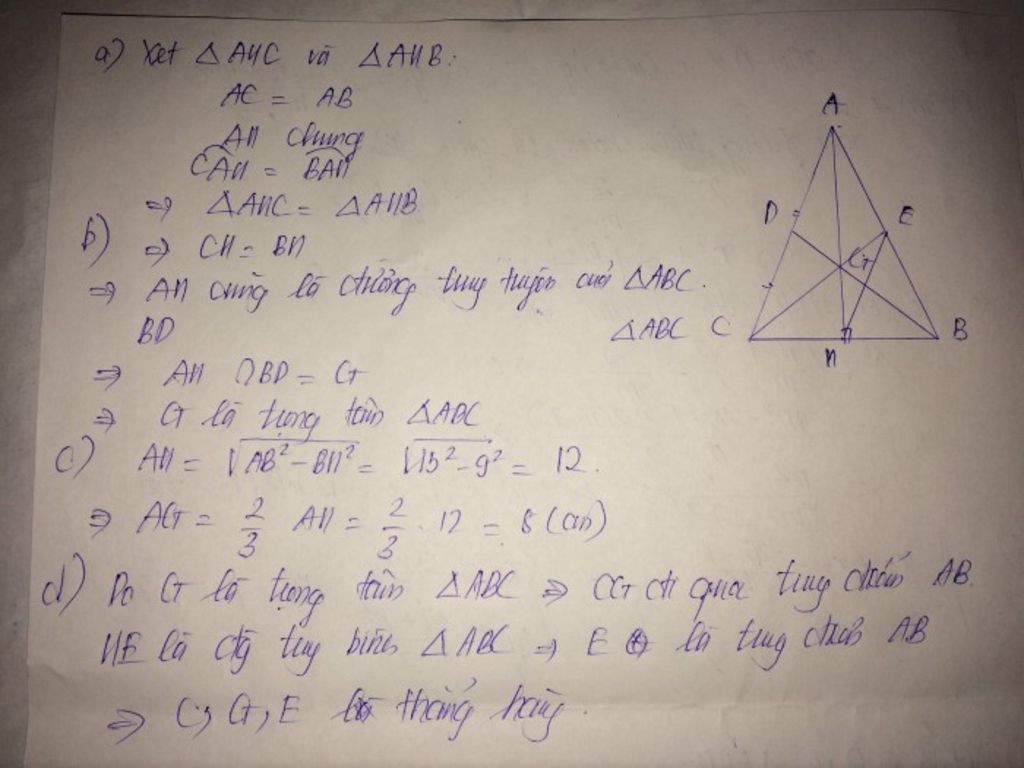 a) Xét △AHC và △AHB:
AC = AB
AH chung
CAH = BAH
⇒ △AHC = △AHB
b) ⇒ CH = BH
⇒ AH cũng là đường trung tuyến của △ABC.
BD △ABC
⇒ AH ∩ BD = G
⇒ G là trọng tâm △ABC
c) AH = √AB² - BH² = √15² - 9² = 12.
⇒ AG = 2/3 AH = 2/3 . 12 = 8 (cm)
d) Do G là trọng tâm △ABC ⇒ CG đi qua trung điểm AB.
HE là đg trung bình △ABC ⇒ E là trung điểm AB
⇒ C, G, E thẳng hàng.
A
D
E
G
C
B
H